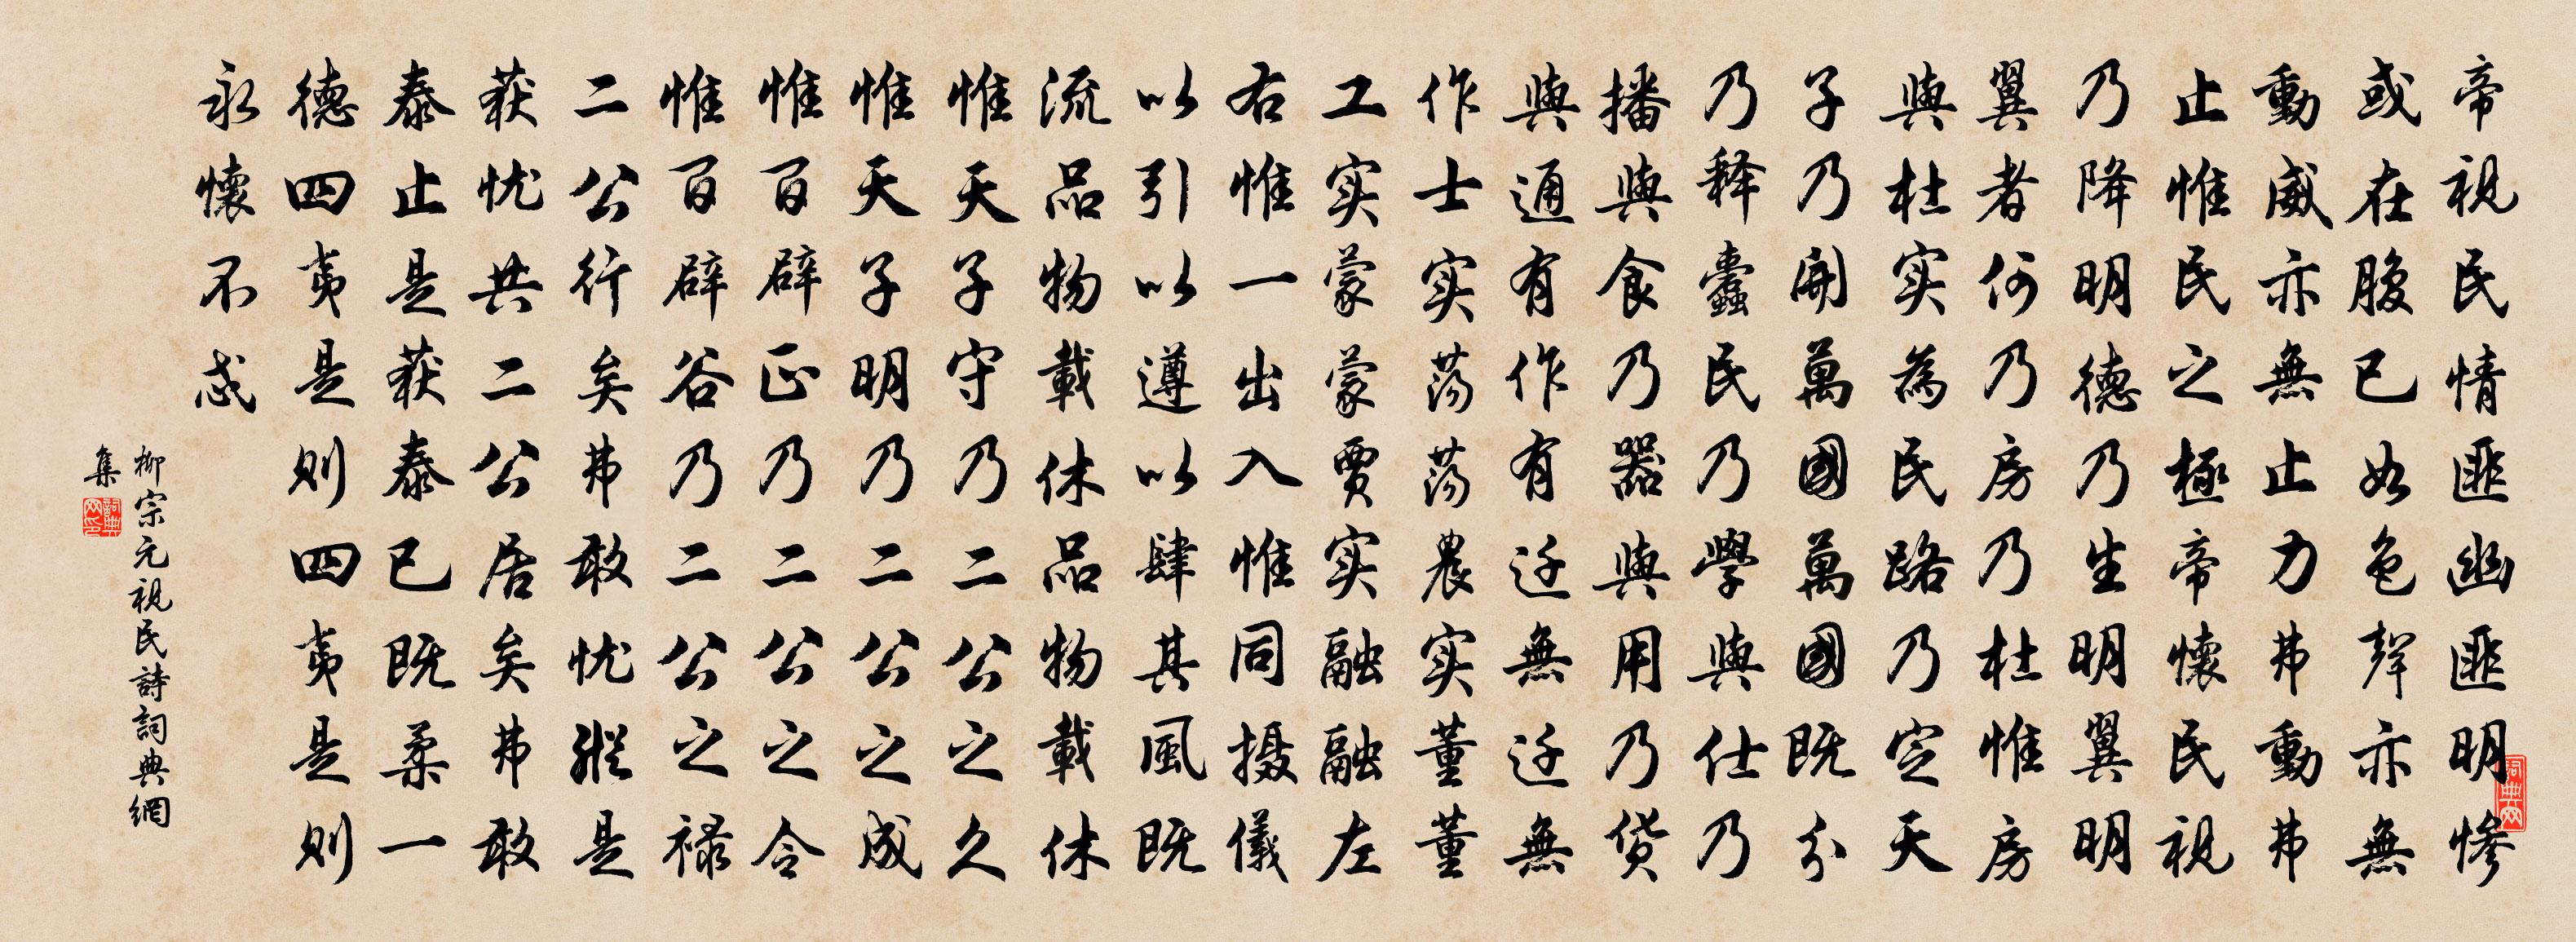 帝視民情匪幽匪明慘
或在腹已如色聲亦無
動威亦無止力弗動弗
止惟民之極帝懷民視
乃降明德乃生明翼明
翼者何乃房乃杜惟房
與杜实為民路乃定天
子乃開萬國萬國既分
乃释蠹民乃學與仕乃
播與食乃器與用乃货
與通有作有迁無迁無
作士实蕩蕩農实董董
工实蒙蒙贾实融融左
右惟一出入惟同摄儀
以引以遵以肆其風既
流品物載休品物載休
惟天子守乃二公之久
惟天子明乃二公之成
惟百辟正乃二公之令
惟百辟谷乃二公之禄
二公行矣弗敢忧縱是
获忧共二公居矣弗敢
泰止是获泰已既柔一
德四夷是则四夷是则
永懷不忒
柳宗元視民詩詞典網
集
詞典网印
詞典网